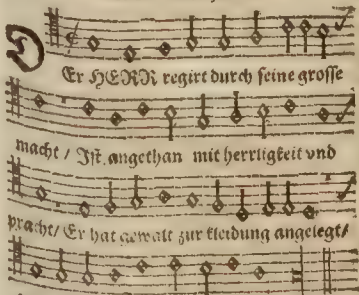 DEr HERR regirt durch seine grosse
macht / Jst angethan mit herrligkeit vnd
pracht / Er hat gewalt zur kleidung angelegt /